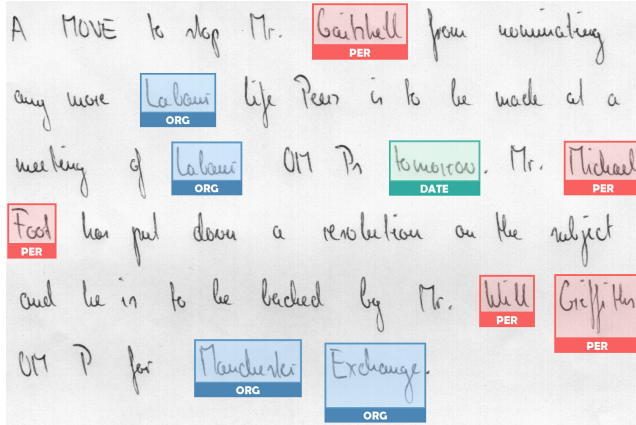 A MOVE to stop Mr. Gaitskell from nominating
PER
any more Labour Life Peers is to be made at a
ORG
meeting of Labour OM Ps tomorrow. Mr. Michael
ORG DATE PER
Foot has put down a resolution on the subject
PER
and he is to be backed by Mr. Will Griffiths
PER PER
OM P for Manchester Exchange.
ORG ORG